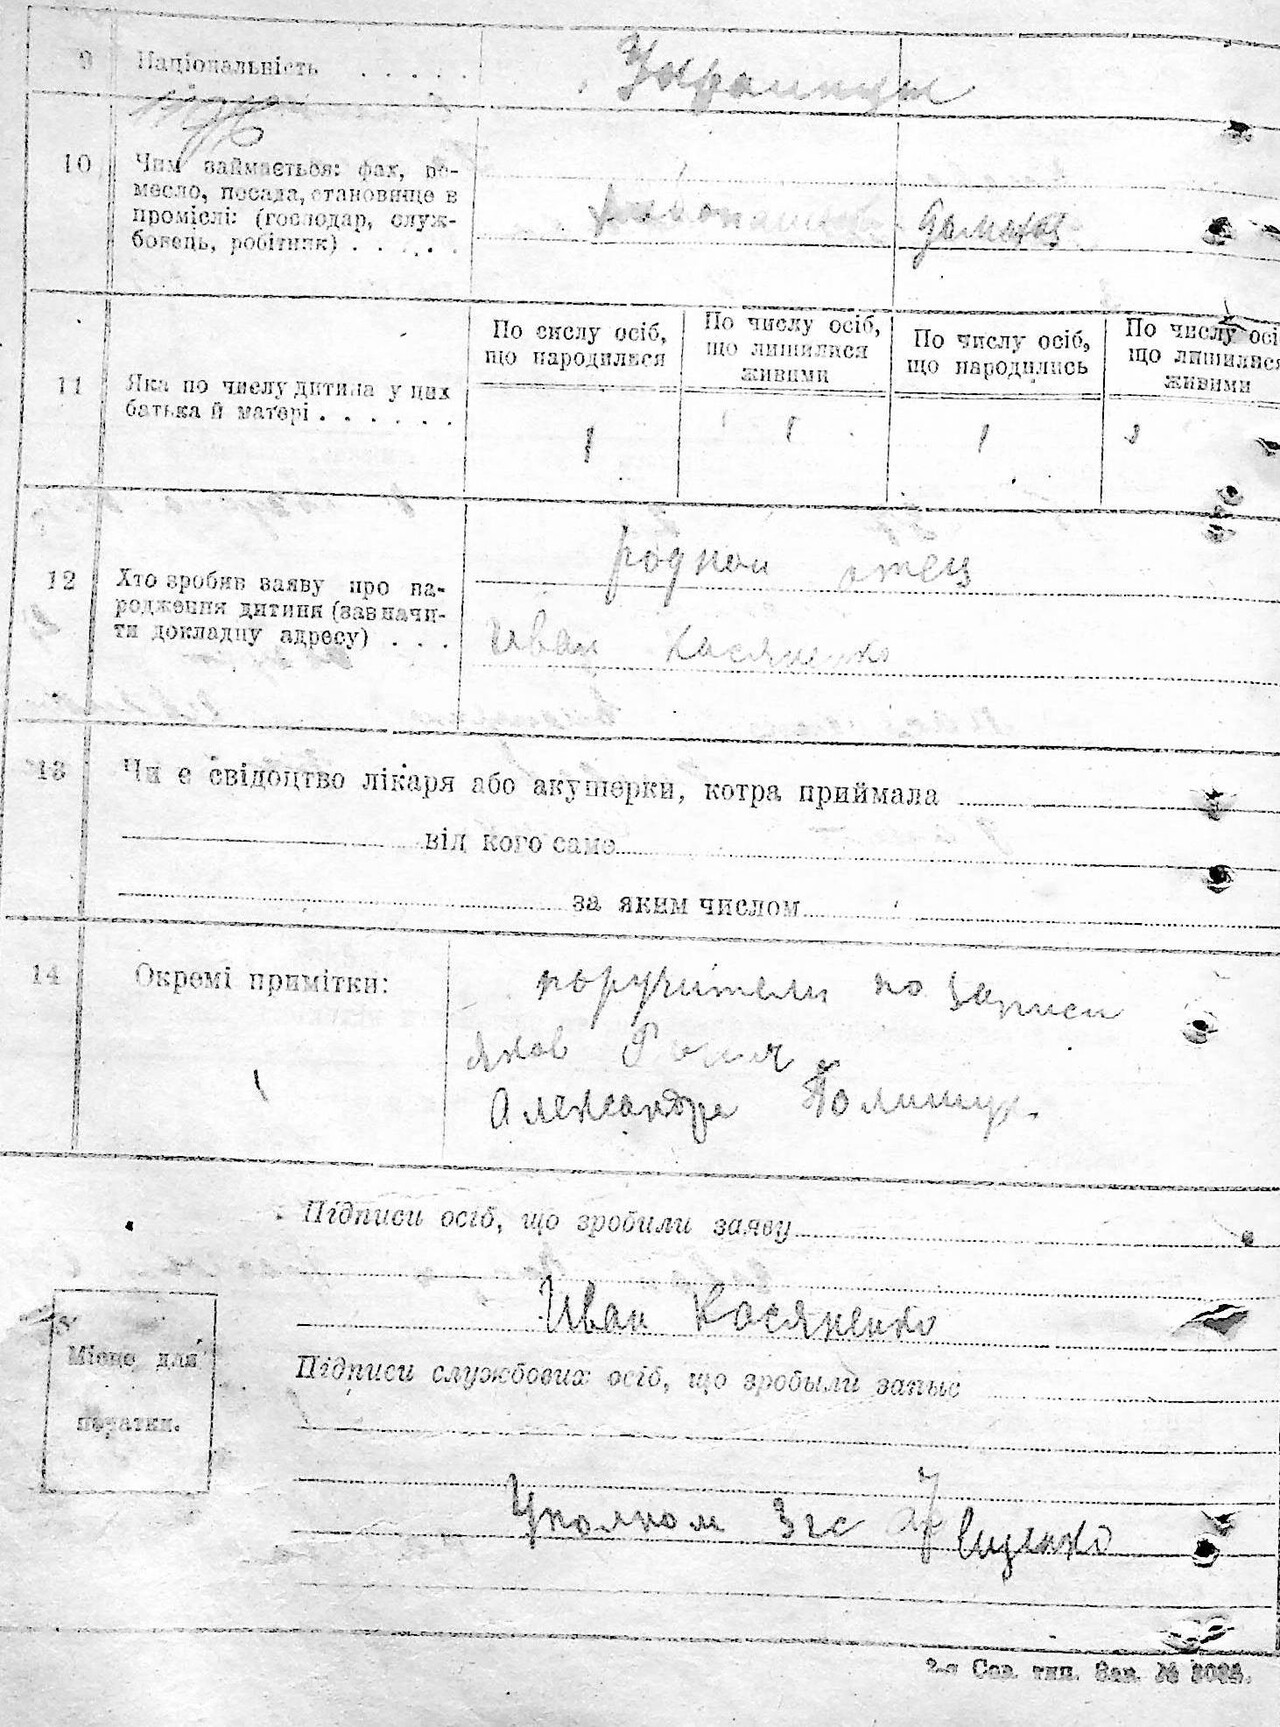 9 Національність . . . . . Украинцы
10 Чим займається: фах, ре-
месло, посада, становище в
проміслі: (господар, служ-
бовець, робітник) . . . . .
По числу осіб, що народилися
По числу осіб, що лишилися живими
По числу осіб, що народились
По числу осіб що лишилися живими
11 Яка по числу дитина у цих
батька й матері . . . . . .
1 1 1 1
12 Хто зробив заяву про на-
родження дитини (зазначи-
ти докладну адресу) . . .
родной отец
Иван Касяненко
13 Чи є свідоцтво лікаря або акушерки, котра приймала
від кого саме
за яким числом
14 Окремі примітки:
поручители по записи
Яков
Александра Полищук.
Підписи осіб, що зробили заяву
Иван Касяненко
Місце для
печатки.
Підписи службових осіб, що зробыли запыс
Уполном Загс
2-я Сов. тип. Зак. №